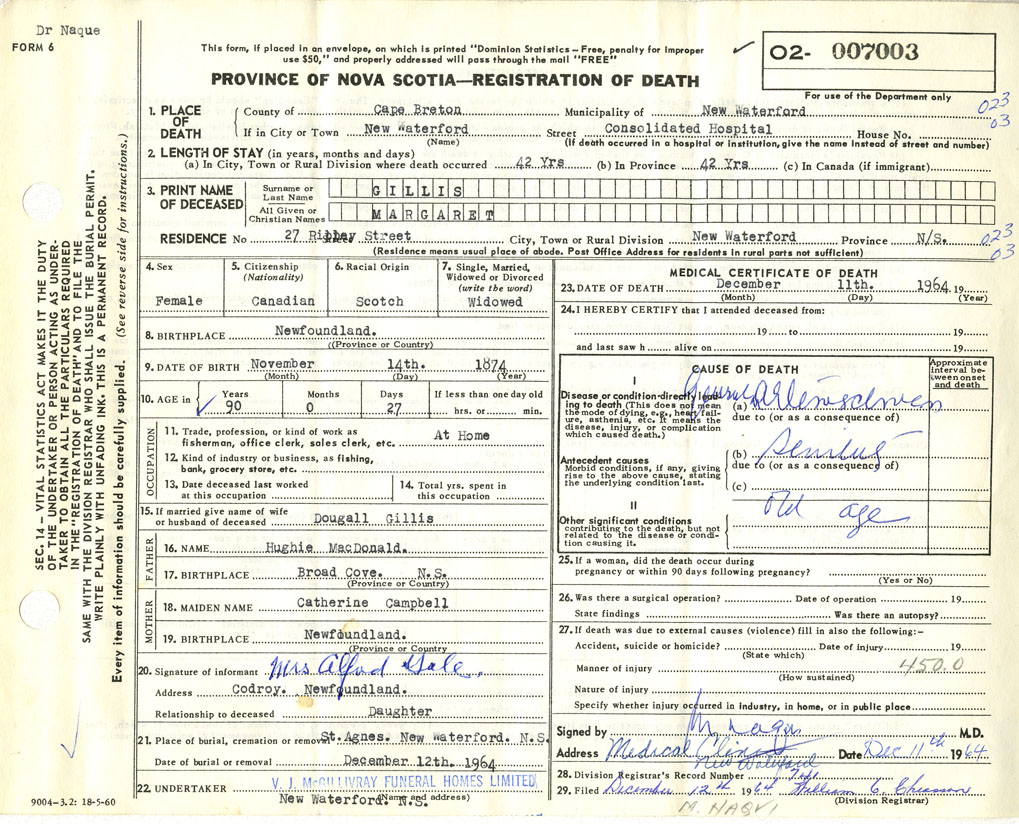 Dr Naque
FORM 6
This form, if placed in an envelope, on which is printed "Dominion Statistics – Free, penalty for improper
use $50," and properly addressed will pass through the mail "FREE"
✓
O2- 007003
For use of the Department only
PROVINCE OF NOVA SCOTIA—REGISTRATION OF DEATH
023
03
1. PLACE OF DEATH
County of Cape Breton Municipality of New Waterford
If in City or Town New Waterford Street Consolidated Hospital House No.
(Name) (If death occurred in a hospital or institution, give the name instead of street and number)
2. LENGTH OF STAY (in years, months and days)
(a) In City, Town or Rural Division where death occurred 42 Yrs (b) In Province 42 Yrs (c) In Canada (if immigrant)
3. PRINT NAME OF DECEASED
Surname or Last Name GILLIS
All Given or Christian Names MARGARET
RESIDENCE No 27 Street City, Town or Rural Division New Waterford Province N/S.
023
03
(Residence means usual place of abode. Post Office Address for residents in rural parts not sufficient)
4. Sex
Female
5. Citizenship
(Nationality)
Canadian
6. Racial Origin
Scotch
7. Single, Married,
Widowed or Divorced
(write the word)
Widowed
8. BIRTHPLACE Newfoundland.
(Province or Country)
9. DATE OF BIRTH November 14th. 1874
(Month) (Day) (Year)
10. AGE in Years Months Days If less than one day old
✓ 90 0 27 hrs. or min.
OCCUPATION
11. Trade, profession, or kind of work as
fisherman, office clerk, sales clerk, etc. At Home
12. Kind of industry or business, as fishing,
bank, grocery store, etc.
13. Date deceased last worked
at this occupation
14. Total yrs. spent in
this occupation
15. If married give name of wife
or husband of deceased Dougall Gillis
FATHER
16. NAME Hughie MacDonald.
17. BIRTHPLACE Broad Cove. N.S.
(Province or Country)
MOTHER
18. MAIDEN NAME Catherine Campbell
19. BIRTHPLACE Newfoundland.
(Province or Country
20. Signature of informant Mrs Alfred Gale.
Address Codroy. Newfoundland.
Relationship to deceased Daughter
21. Place of burial, cremation or removal St. Agnes. New Waterford. N.S.
Date of burial or removal December 12th. 1964
22. UNDERTAKER V. J. McGILLIVRAY FUNERAL HOMES LIMITED
New Waterford. N.S.
(Name and address)
MEDICAL CERTIFICATE OF DEATH
23. DATE OF DEATH December 11th. 1964 19
(Month) (Day) (Year)
24. I HEREBY CERTIFY that I attended deceased from
19 to 19
and last saw h alive on 19
CAUSE OF DEATH
Approximate
interval be-
tween onset
and death
I
Disease or condition directly lead-
ing to death (This does not mean
the mode of dying, e.g., heart fail-
ure, asthenia, etc. It means the
disease, injury, or complication
which caused death.)
(a)
due to (or as a consequence of)
Antecedent causes
Morbid conditions, if any, giving
rise to the above cause, stating
the underlying condition last.
(b)
due to (or as a consequence of)
(c)
II
Other significant conditions
contributing to the death, but not
related to the disease or condi-
tion causing it.
Old age
25. If a woman, did the death occur during
pregnancy or within 90 days following pregnancy?
(Yes or No)
26. Was there a surgical operation? Date of operation 19
State findings Was there an autopsy?
27. If death was due to external causes (violence) fill in also the following:–
Accident, suicide or homicide? Date of injury 19
(State which)
Manner of injury 450.0
(How sustained)
Nature of injury
Specify whether injury occurred in industry, in home, or in public place
Signed by M. Naqvi M.D.
Address Medical Clinic New Waterford Date Dec 11th 1964
28. Division Registrar's Record Number
29. Filed December 12th 1964 William C. Chiasson
(Division Registrar)
M. NAQVI
SEC. 14 – VITAL STATISTICS ACT MAKES IT THE DUTY
OF THE UNDERTAKER OR PERSON ACTING AS UNDER-
TAKER TO OBTAIN ALL THE PARTICULARS REQUIRED
IN THE "REGISTRATION OF DEATH" AND TO FILE THE
SAME WITH THE DIVISION REGISTRAR WHO SHALL ISSUE THE BURIAL PERMIT.
WRITE PLAINLY WITH UNFADING INK. THIS IS A PERMANENT RECORD.
Every item of information should be carefully supplied. (See reverse side for instructions.)
9004–3.2: 18-5-60